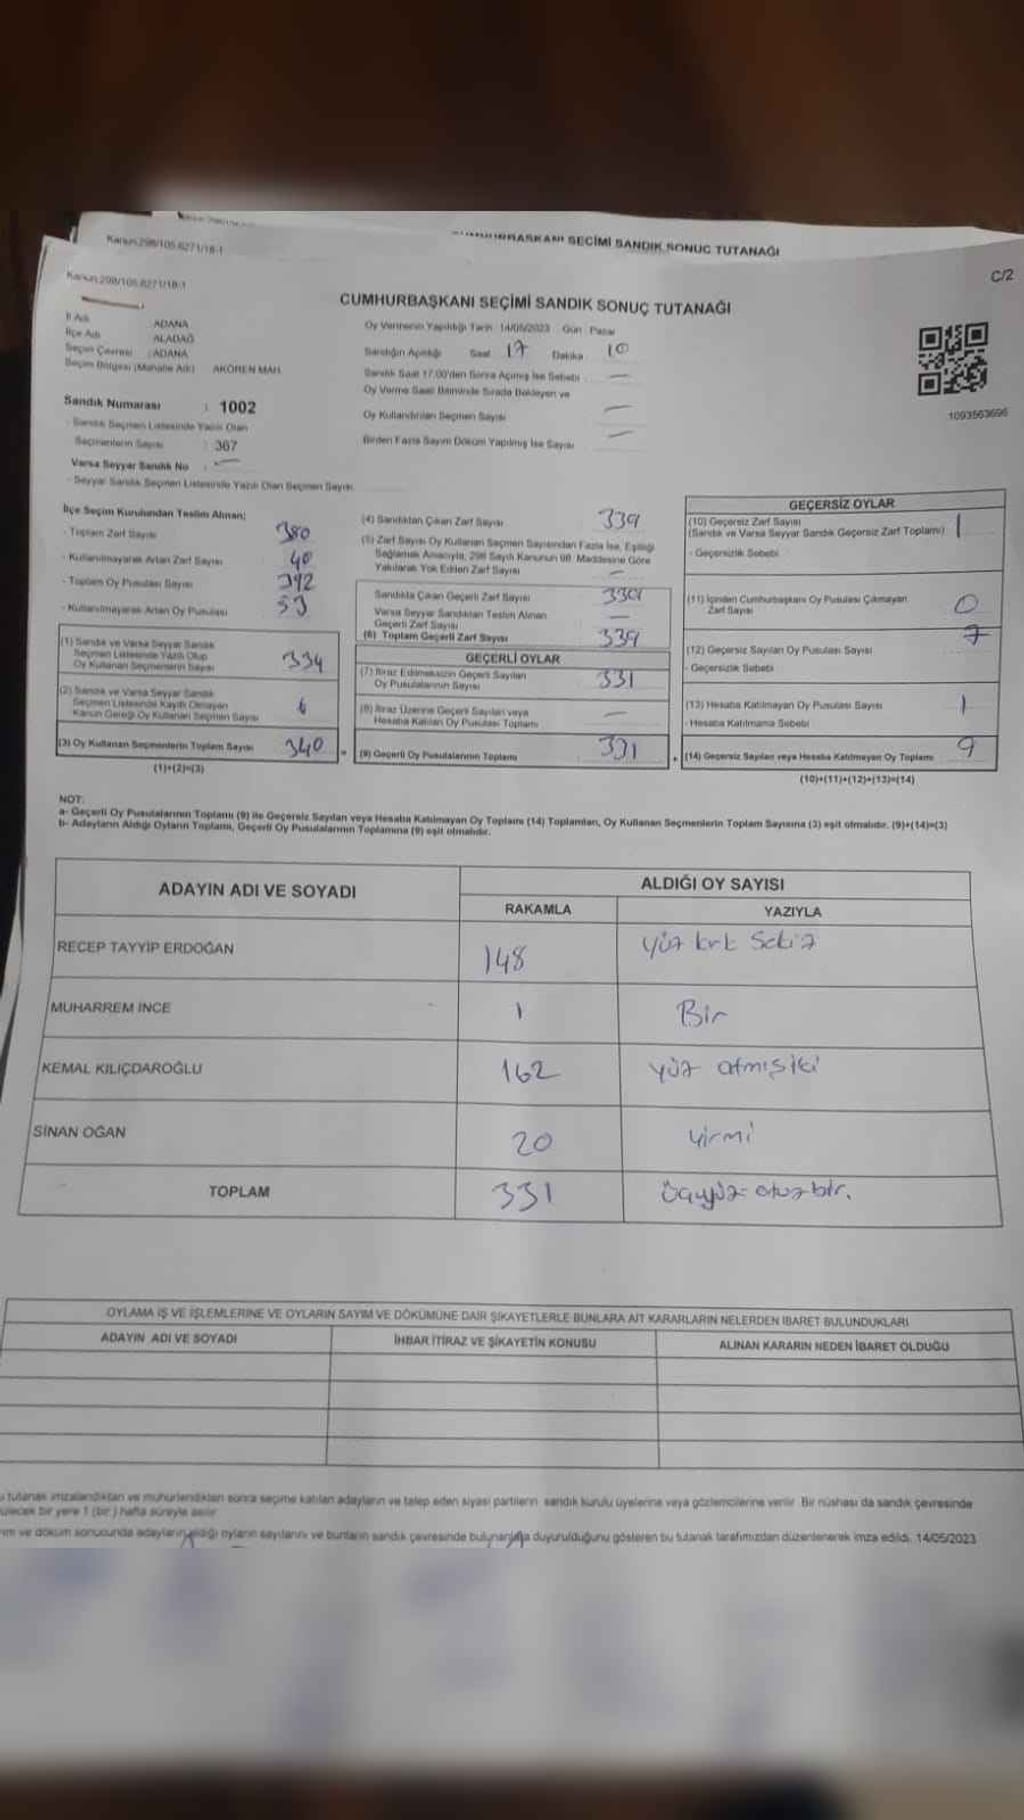 CUMHURBAŞKANI SEÇİMİ SANDIK SONUÇ TUTANAĞI
Kanun:298/105.6271/18-1
C/2
Kanun:298/105.6271/18-1
CUMHURBAŞKANI SEÇİMİ SANDIK SONUÇ TUTANAĞI
İl Adı : ADANA
İlçe Adı : ALADAĞ
Seçim Çevresi : ADANA
Seçim Bölgesi (Mahalle Adı) : AKÖREN MAH.
Sandık Numarası : 1002
- Sandık Seçmen Listesinde Yazılı Olan
Seçmenlerin Sayısı : 367
Varsa Seyyar Sandık No : —
- Seyyar Sandık Seçmen Listesinde Yazılı Olan Seçmen Sayısı
Oy Vermenin Yapıldığı Tarih 14/05/2023 Gün Pazar
Sandığın Açıldığı Saat 17 Dakika 10
Sandık Saat 17.00'den Sonra Açılmış İse Sebebi —
Oy Verme Saati Bitiminde Sırada Bekleyen ve
Oy Kullandırılan Seçmen Sayısı —
Birden Fazla Sayım Döküm Yapılmış İse Sayısı —
1093563696
İlçe Seçim Kurulundan Teslim Alınan;
- Toplam Zarf Sayısı 380
- Kullanılmayarak Artan Zarf Sayısı 40
- Toplam Oy Pusulası Sayısı 392
- Kullanılmayarak Artan Oy Pusulası 53
(1) Sandık ve Varsa Seyyar Sandık
Seçmen Listesinde Yazılı Olup
Oy Kullanan Seçmenlerin Sayısı 334
(2) Sandık ve Varsa Seyyar Sandık
Seçmen Listesinde Kayıtlı Olmayan
Kanun Gereği Oy Kullanan Seçmenlerin Sayısı 6
(3) Oy Kullanan Seçmenlerin Toplam Sayısı 340
(1)+(2)=(3)
(4) Sandıktan Çıkan Zarf Sayısı 339
(5) Zarf Sayısı Oy Kullanan Seçmen Sayısından Fazla İse, Eşitliği
Sağlamak Amacıyla, 298 Sayılı Kanunun 98. Maddesine Göre
Yakılarak Yok Edilen Zarf Sayısı —
Sandıkta Çıkan Geçerli Zarf Sayısı 339
Varsa Seyyar Sandıktan Teslim Alınan
Geçerli Zarf Sayısı —
(6) Toplam Geçerli Zarf Sayısı 339
GEÇERLİ OYLAR
(7) İtiraz Edilmeksizin Geçerli Sayılan
Oy Pusulalarının Sayısı 331
(8) İtiraz Üzerine Geçerli Sayılan veya
Hesaba Katılan Oy Pusulası Toplamı —
(9) Geçerli Oy Pusulalarının Toplamı 331
GEÇERSİZ OYLAR
(10) Geçersiz Zarf Sayısı
(Sandık ve Varsa Seyyar Sandık Geçersiz Zarf Toplamı) 1
- Geçersizlik Sebebi
(11) İçinden Cumhurbaşkanı Oy Pusulası Çıkmayan
Zarf Sayısı 0
(12) Geçersiz Sayılan Oy Pusulası Sayısı 7
- Geçersizlik Sebebi
(13) Hesaba Katılmayan Oy Pusulası Sayısı 1
- Hesaba Katılmama Sebebi
(14) Geçersiz Sayılan veya Hesaba Katılmayan Oy Toplamı 9
(10)+(11)+(12)+(13)=(14)
NOT:
a- Geçerli Oy Pusulalarının Toplamı (9) ile Geçersiz Sayılan veya Hesaba Katılmayan Oy Toplamı (14) Toplamları, Oy Kullanan Seçmenlerin Toplam Sayısına (3) eşit olmalıdır. (9)+(14)=(3)
b- Adayların Aldığı Oyların Toplamı, Geçerli Oy Pusulalarının Toplamına (9) eşit olmalıdır.
ADAYIN ADI VE SOYADI ALDIĞI OY SAYISI
RAKAMLA YAZIYLA
RECEP TAYYİP ERDOĞAN 148 yüz kırk sekiz
MUHARREM İNCE 1 Bir
KEMAL KILIÇDAROĞLU 162 yüz atmışiki
SİNAN OĞAN 20 yirmi
TOPLAM 331 üçyüz otuzbir.
OYLAMA İŞ VE İŞLEMLERİNE VE OYLARIN SAYIM VE DÖKÜMÜNE DAİR ŞİKAYETLERLE BUNLARA AİT KARARLARIN NELERDEN İBARET BULUNDUKLARI
ADAYIN ADI VE SOYADI İHBAR İTİRAZ VE ŞİKAYETİN KONUSU ALINAN KARARIN NEDEN İBARET OLDUĞU
tutanak imzalandıktan ve mühürlendikten sonra seçime katılan adayların ve talep eden siyasi partilerin sandık kurulu üyelerine veya gözlemcilerine verilir. Bir nüshası da sandık çevresinde
bir yere 1 (bir) hafta süreyle asılır.
ve döküm sonucunda adayların aldığı oyların sayılarını ve bunların sandık çevresinde bulunanlara duyurulduğunu gösteren bu tutanak tarafımızdan düzenlenerek imza edildi. 14/05/2023